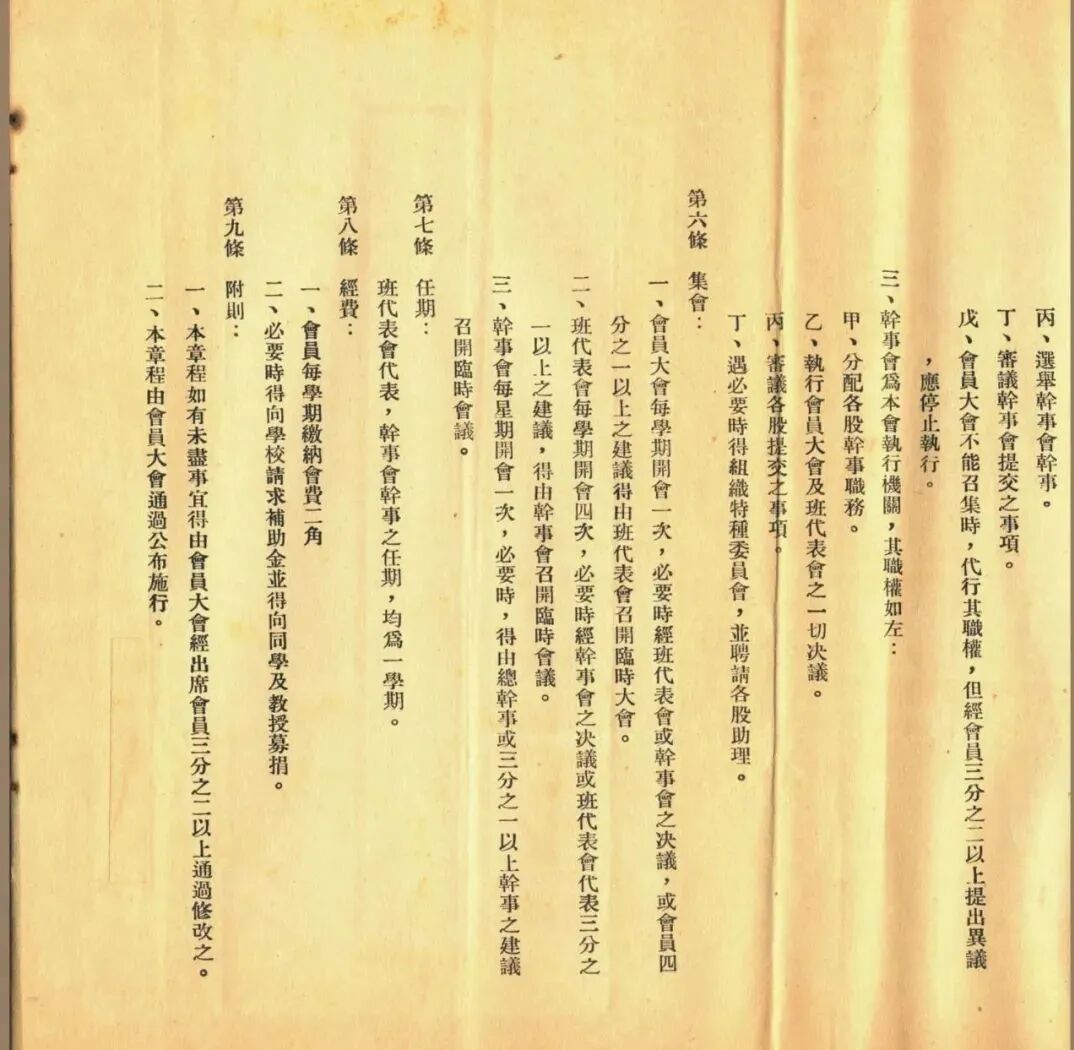 丙、選舉幹事會幹事。
丁、審議幹事會提交之事項。
戊、會員大會不能召集時，代行其職權，但經會員三分之二以上提出異議
，應停止執行。
三、幹事會爲本會執行機關，其職權如左：
甲、分配各股幹事職務。
乙、執行會員大會及班代表會之一切决議。
丙、審議各股提交之事項。
丁、遇必要時得組織特種委員會，並聘請各股助理。
第六條　集會：
一、會員大會每學期開會一次，必要時經班代表會或幹事會之决議，或會員四
分之一以上之建議得由班代表會召開臨時大會。
二、班代表會每學期開會四次，必要時經幹事會之决議或班代表會代表三分之
一以上之建議，得由幹事會召開臨時會議。
三、幹事會每星期開會一次，必要時，得由總幹事或三分之一以上幹事之建議
召開臨時會議。
第七條　任期：
班代表會代表，幹事會幹事之任期，均爲一學期。
第八條　經費：
一、會員每學期繳納會費二角
二、必要時得向學校請求補助金並得向同學及教授募捐。
第九條　附則：
一、本章程如有未盡事宜得由會員大會經出席會員三分之二以上通過修改之。
二、本章程由會員大會通過公布施行。